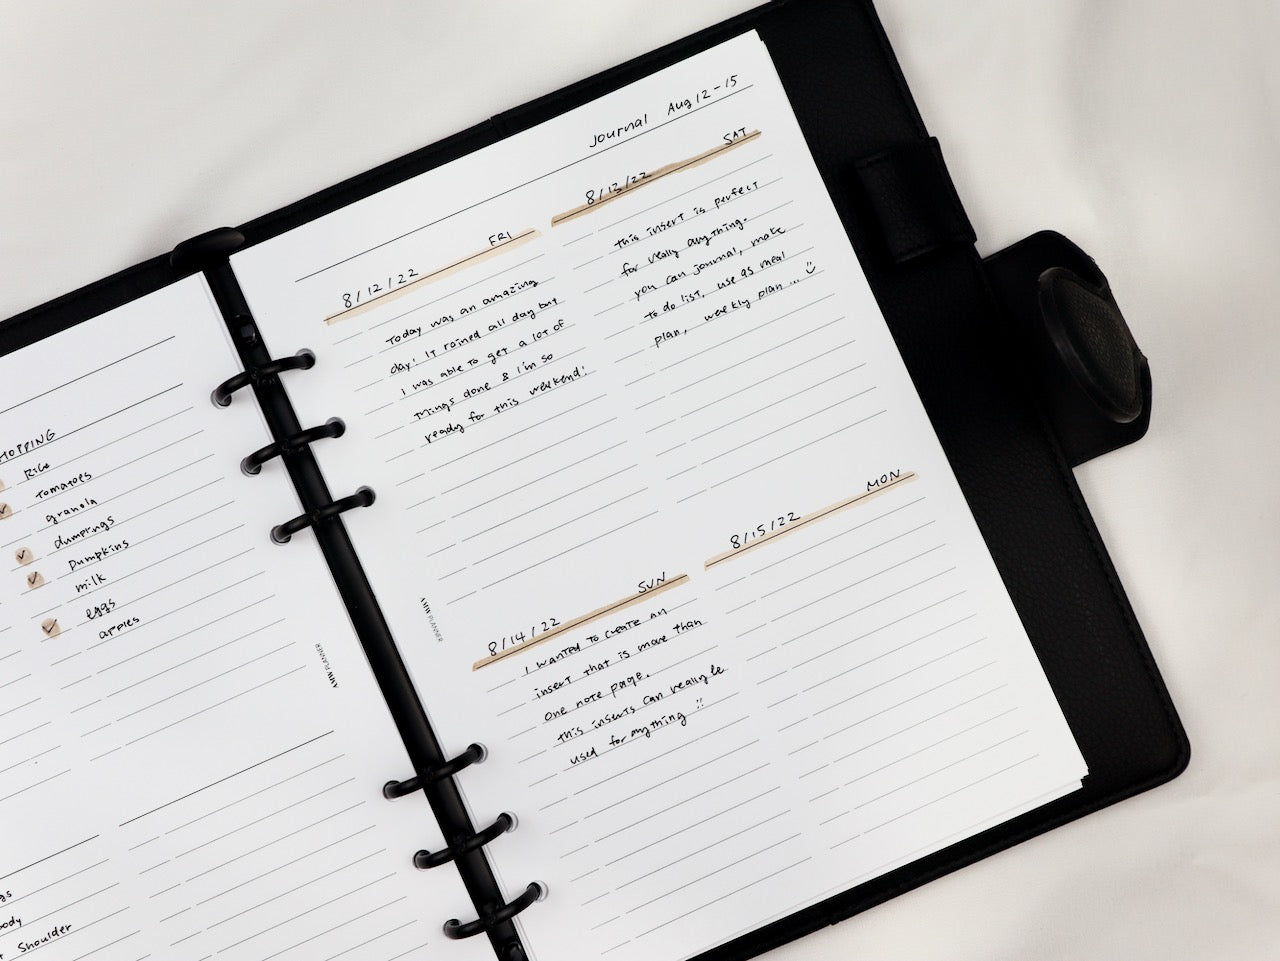 SHOPPING
Rice
tomatoes
granola
dumplings
pumpkins
milk
eggs
apples
AMW PLANNER
body
Shoulder
Journal Aug 12-15
8/12/22 FRI
Today was an amazing
day! IT rained all day but
I was able to get a lot of
things done & I'm so
ready for this weekend!
8/13/22 SAT
this insert is perfect
for really anything.
you can journal, make
to do list, use as meal
plan, weekly plan ... :)
8/14/22 SUN
I wanted to create an
insert that is more than
one note page.
this inserts can really be
used for anything !!
8/15/22 MON
AMW PLANNER